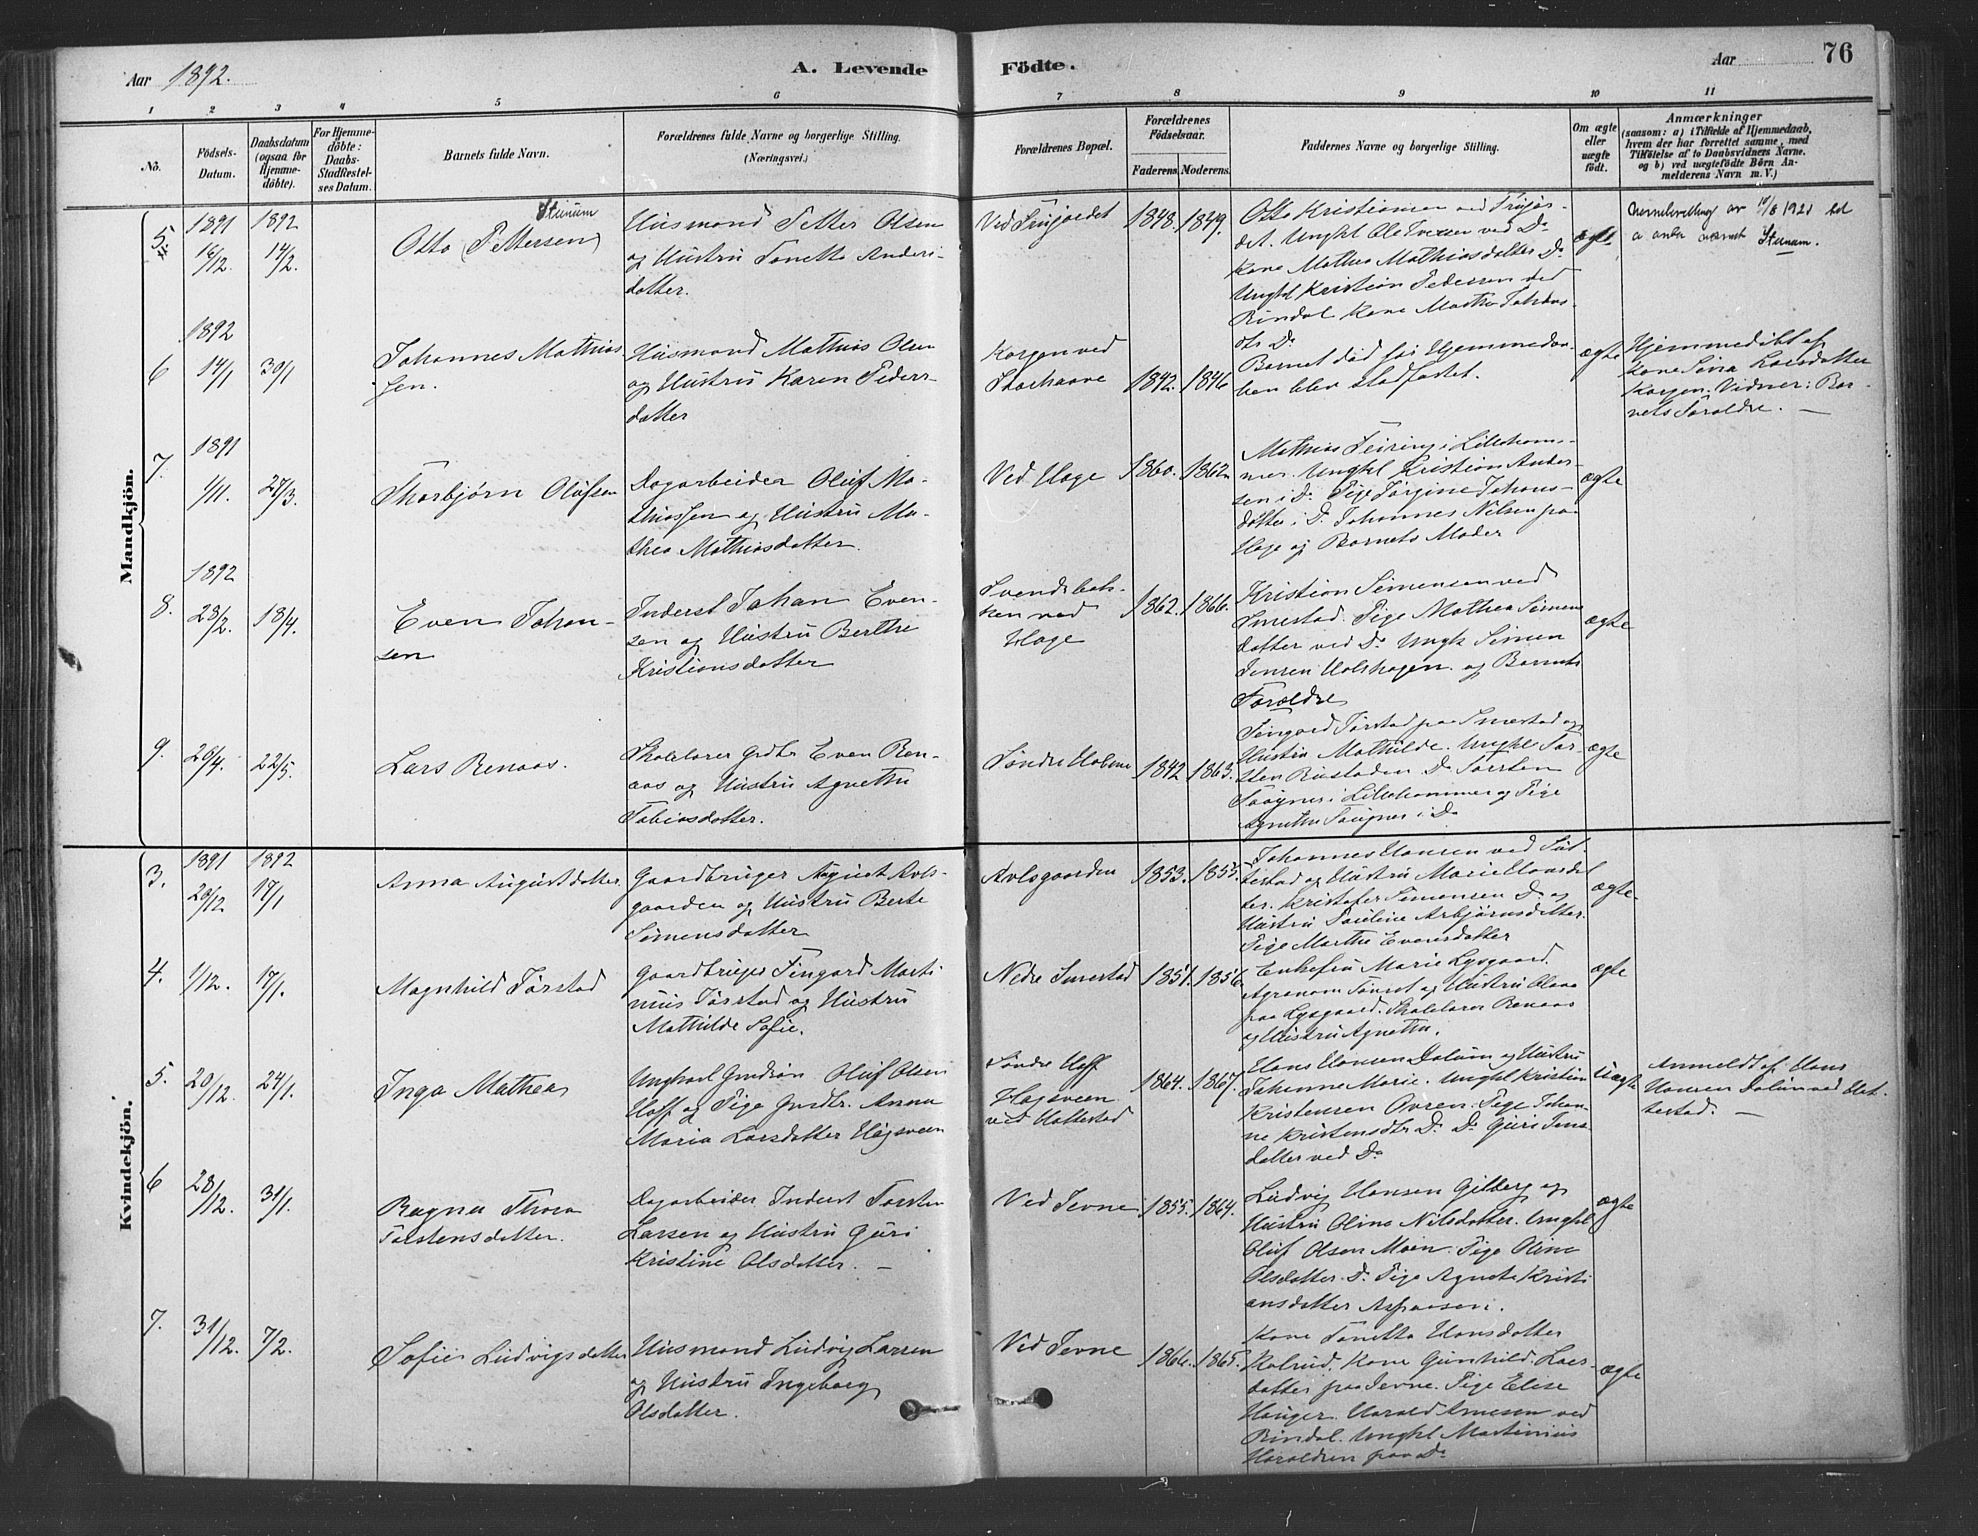 Aar 1892.
A. Levende
Födte.
Aar
76
1
2
3
4
5
6
7
8
9
10
11
No.
Födsels-
Datum.
Daabsdatum
(ogsaa for
Hjemme-
döbte).
For Hjemme-
döbte:
Daabs-
Stadfæstel-
ses Datum.
Barnets fulde Navn.
Forældrenes fulde Navne og borgerlige Stilling.
(Næringsvei.)
Forældrenes Bopæl.
Forældrenes
Födselsaar.
Faderens.
Moderens.
Faddernes Navne og borgerlige Stilling.
Om ægte
eller
uægte
født.
Anmærkninger
(saasom: a) i Tilfælde af Hjemmedaab,
hvem der har forrettet samme, med
Tilföielse af to Daabsvidners Navne.
og b) ved uægtefödte Börn An-
melderens Navn m. V.)
Mandkjön.
5
1891
16/12.
1892
14/2.
Stunum
Otto (Pettersen)
Husmand Petter Olsen
og Hustru Tonetta Anders-
datter.
1848.
1849.
Otto Kristiansen ved
Unghl Ole Iversen ved Do
Kone Mathea Mathiasdatter Do
Unghl Kristian Pedersen ved
Rindal Kone Marthe Johans-
dtr Do
ægte
10/8 1921
Stunum.
6
1892
14/1
30/1
Johannes Mathias-
sen.
Husmand Mathias Olsen
og Hustru Karen Peders-
datter
Korgen ved
Storhaave
1842.
1846
Barnet död før Hjemmedaa-
ben blev stadfæstet.
ægte
Hjemmedöbt af
Kone Sina Larsdatter
Korgen. Vidner: Bar-
nets Forældre. —
7.
1891
1/11.
27/3.
Thorbjørn Olufsen
Dagarbeider Oluf Ma-
thiassen og Hustru Ma-
thea Mathiasdatter.
Ved Hage
1860.
1862
Mathias Feiring i Lilleham-
mer. Unghl Kristian Ander-
sen i Do Pige Jørgine Johans-
datter i Do Johannes Nilsen paa
Hage og Barnets Moder
ægte
8.
1892
28/2.
18/4.
Even Johan-
sen
Inderst Johan Even-
sen og Hustru Berthe
Kristiansdatter
Svendsbak-
ken ved
Hage
1862.
1866.
Kristian Simensen ved
Smestad. Pige Mathea Simens
datter ved Do Unghl Simen
Jensen Holshagen og Barnets
Forældre
ægte
9.
20/4.
22/5.
Lars Benaas.
Skolelærer Grdbr Even Ben-
aas og Hustru Agnethe
Tobiasdatter.
Søndre Hoven
1842
1863.
Fingard Jørstad paa Smestad og
Hustru Mathilde. Unghl Tor-
sten Rustaden Do Torsten
Sougnes i Lillehammer og Pige
Agnethe Sougnes i Do
ægte
Kvindekjön.
3.
1891
20/12
1892
17/1
Anna Augustdatter.
Gaardbruger August Avls-
gaarden og Hustru Berte
Simensdatter
Avlsgaarden
1853.
1855.
Johannes Hansen ved
og Hustru Marie Hansdat-
ter. Kristofer Simensen Do og
Hustru Pauline Asbjørnsdatter.
Pige Marthe Evensdatter
ægte
4.
1/12.
17/1.
Magnhild Jørstad
Gaardbruger Fingard Marti-
nius Jørstad og Hustru
Mathilde Sofie.
Nedre Smestad
1851.
1856.
Enkefru Marie Lysgaard.
Agronom og Hustru Olava
paa Lysgaard. Skolelærer Benaas
og Hustru Agnethe.
ægte
5.
20/12.
24/1.
Inga Mathea
Ungkarl Gmdsøn Oluf Olsen
Hoff og Pige Grdbr. Anna
Maria Larsdatter Hagsveen
Søndre Hoff
Hagsveen
ved Hattestad
1864.
1867.
Hans Hansen Dalum og Hustru
Johanne Marie. Unghl Kristian
Kristensen Ovren. Pige Johan-
ne Kristensdtr Do Do Guri Jens-
datter ved Do
Uægte
Anmeldt af Hans
Hansen Dalum ved
testad. —
6
28/12.
31/1.
Ragna Thora
Torstensdatter.
Dagarbeider Inderst Torsten
Larsen og Hustru Guri
Kristine Olsdatter. —
Ved Jevne
1855.
1864.
Ludvig Hansen Gilberg og
Hustru Oline Nilsdatter. Unghl
Oluf Olsen Moen. Pige Oline
Olsdatter Do Pige Agnete Kristi-
ansdatter
ægte
7.
31/12.
7/2.
Sofie Ludvigsdatter
Husmand Ludvig Larsen
og Hustru Ingeborg
Olsdatter.
Ved Jevne
1866.
1865.
Kone Tonetta Hansdatter
Kalrud. Kone Gunhild Lars-
datter paa Jevne. Pige Elise
Hauger. Harald Arnesen ved
Rindal. Unghl Martinius
Haraldsen paa Do
ægte